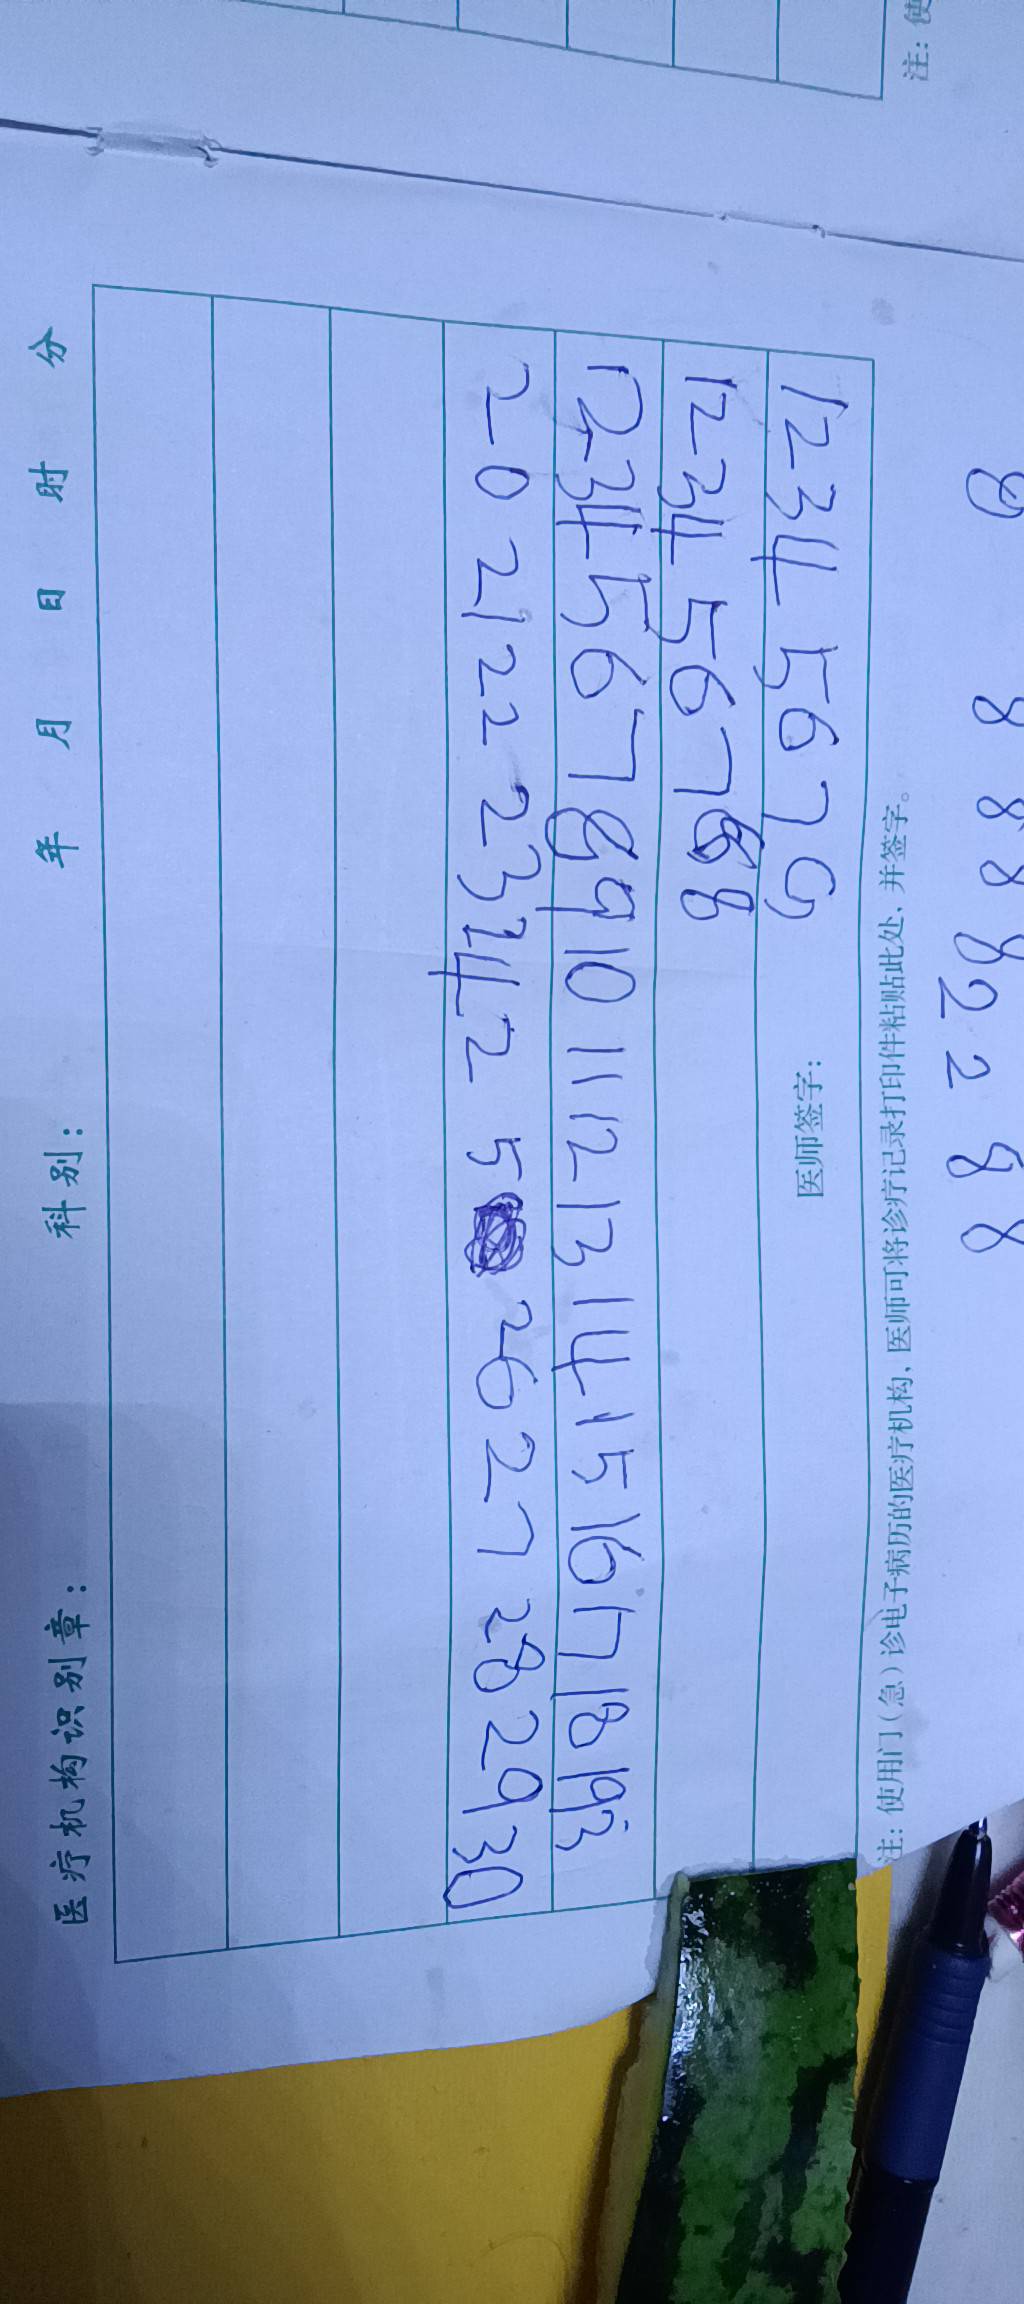 医疗机构识别章: 科别: 年 月 日 时 分
8 8 8 8 8 2 2 8 8
1 2 3 4 5 6 7
1 2 3 4 5 6 7 8 8
1 2 3 4 5 6 7 8 9 10 11 12 13 14 15 16 17 18 19 3
20 21 22 23 24 2 5 26 27 28 29 30
医师签字:
注: 使用门(急)诊电子病历的医疗机构, 医师可将诊疗记录打印件粘贴此处, 并签字。
注: 使